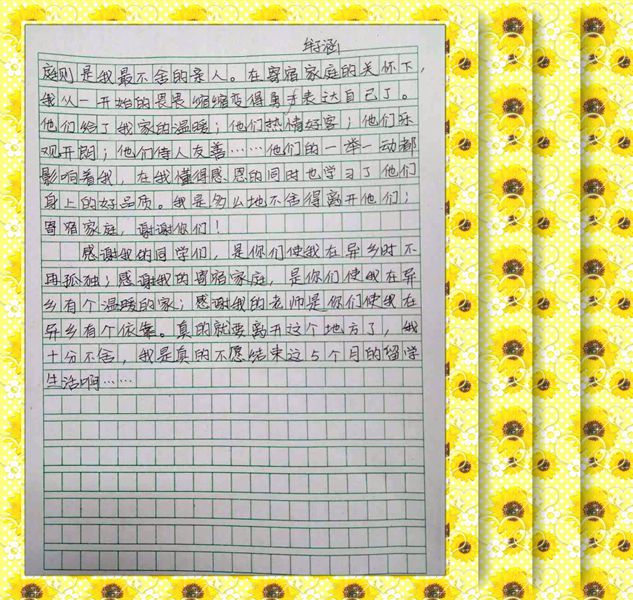 梓涵
庭则是我最不舍的亲人。在寄宿家庭的关怀下，
我从一开始的畏畏缩缩变得勇于表达自己了。
他们给了我家的温暖；他们热情好客；他们乐
观开朗；他们待人友善……他们的一举一动都
影响着我，在我懂得感恩的同时也学习了他们
身上的好品质。我是多么地不舍得离开他们；
寄宿家庭，谢谢你们！
感谢我的同学们，是你们使我在异乡时不
再孤独；感谢我的寄宿家庭，是你们使我在异
乡有个温暖的家；感谢我的老师是你们使我在
异乡有个依靠。真的就要离开这个地方了，我
十分不舍，我是真的不愿结束这5个月的留学
生活啊……